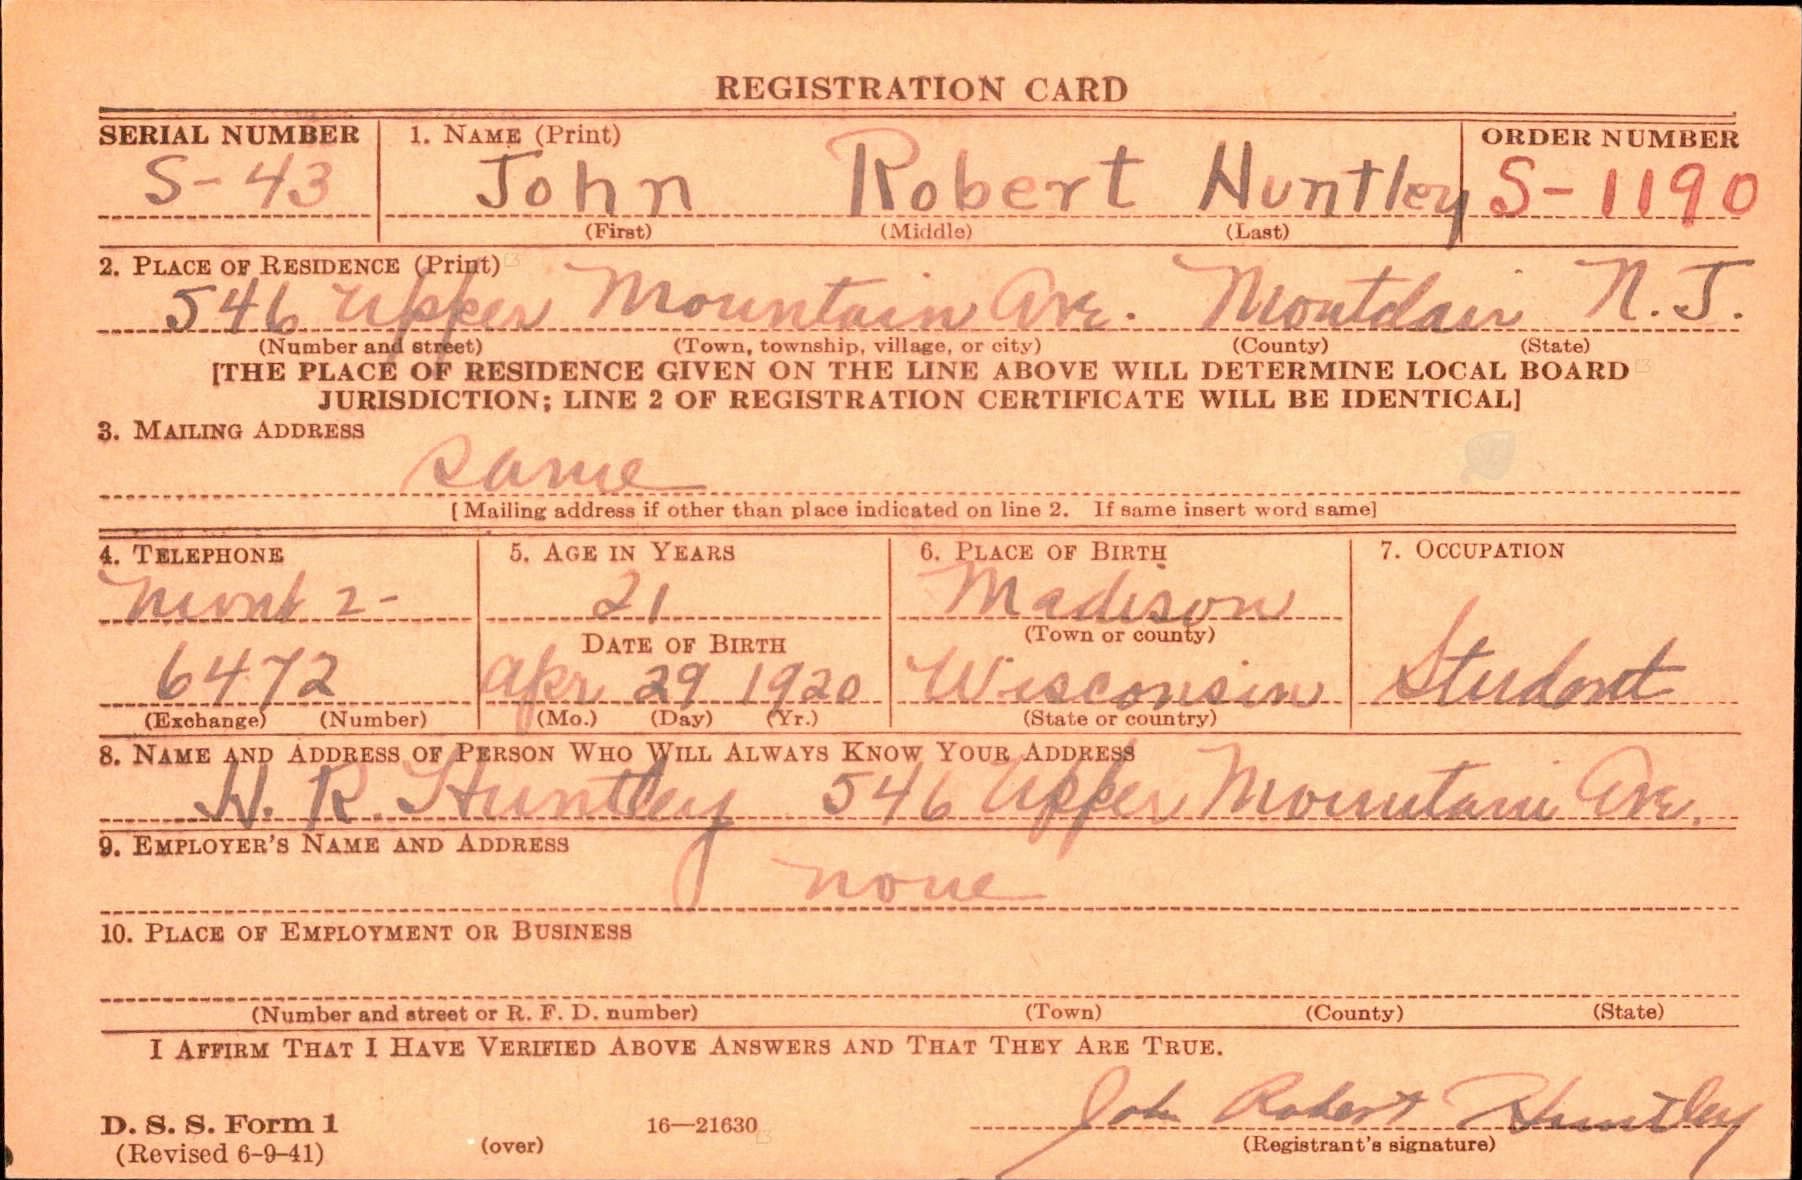 REGISTRATION CARD
SERIAL NUMBER 1. NAME (Print) ORDER NUMBER
S-43 John Robert Huntley S-1190
(First) (Middle) (Last)
2. PLACE OF RESIDENCE (Print)
546 Upper Mountain Ave. Montclair N.J.
(Number and street) (Town, township, village, or city) (County) (State)
[THE PLACE OF RESIDENCE GIVEN ON THE LINE ABOVE WILL DETERMINE LOCAL BOARD
JURISDICTION; LINE 2 OF REGISTRATION CERTIFICATE WILL BE IDENTICAL]
3. MAILING ADDRESS
same
[Mailing address if other than place indicated on line 2. If same insert word same]
4. TELEPHONE 5. AGE IN YEARS 6. PLACE OF BIRTH 7. OCCUPATION
Mont 2- 21 Madison
DATE OF BIRTH (Town or county)
6472 Apr 29 1920 Wisconsin Student
(Exchange) (Number) (Mo.) (Day) (Yr.) (State or country)
8. NAME AND ADDRESS OF PERSON WHO WILL ALWAYS KNOW YOUR ADDRESS
H. R. Huntley 546 Upper Mountain Ave.
9. EMPLOYER'S NAME AND ADDRESS
none
10. PLACE OF EMPLOYMENT OR BUSINESS
(Number and street or R. F. D. number) (Town) (County) (State)
I AFFIRM THAT I HAVE VERIFIED ABOVE ANSWERS AND THAT THEY ARE TRUE.
John Robert Huntley
D. S. S. Form 1 16—21630
(Revised 6-9-41) (over) (Registrant's signature)